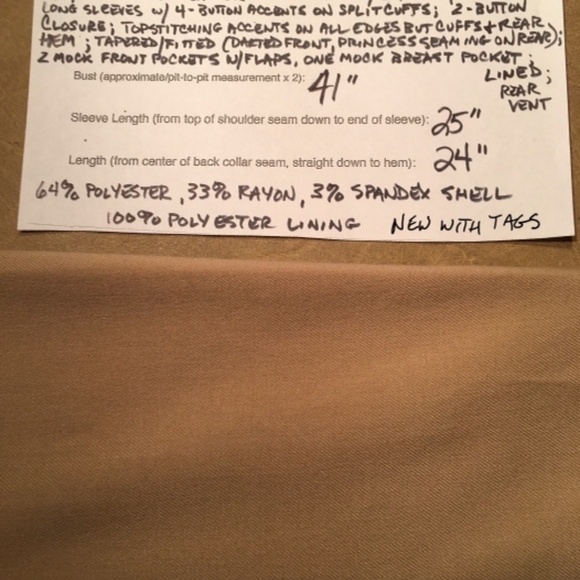 LONG SLEEVES W/ 4-BUTTON ACCENTS ON SPLIT CUFFS; 2-BUTTON
CLOSURE; TOPSTITCHING ACCENTS ON ALL EDGES BUT CUFFS + REAR
HEM; TAPERED/FITTED (DARTED FRONT, PRINCESS SEAMING ON REAR);
2 MOCK FRONT POCKETS W/FLAPS, ONE MOCK BREAST POCKET;
LINED;
REAR
VENT
Bust (approximate/pit-to-pit measurement x 2): 41"
Sleeve Length (from top of shoulder seam down to end of sleeve): 25"
Length (from center of back collar seam, straight down to hem): 24"
64% POLYESTER, 33% RAYON, 3% SPANDEX SHELL
100% POLYESTER LINING NEW WITH TAGS